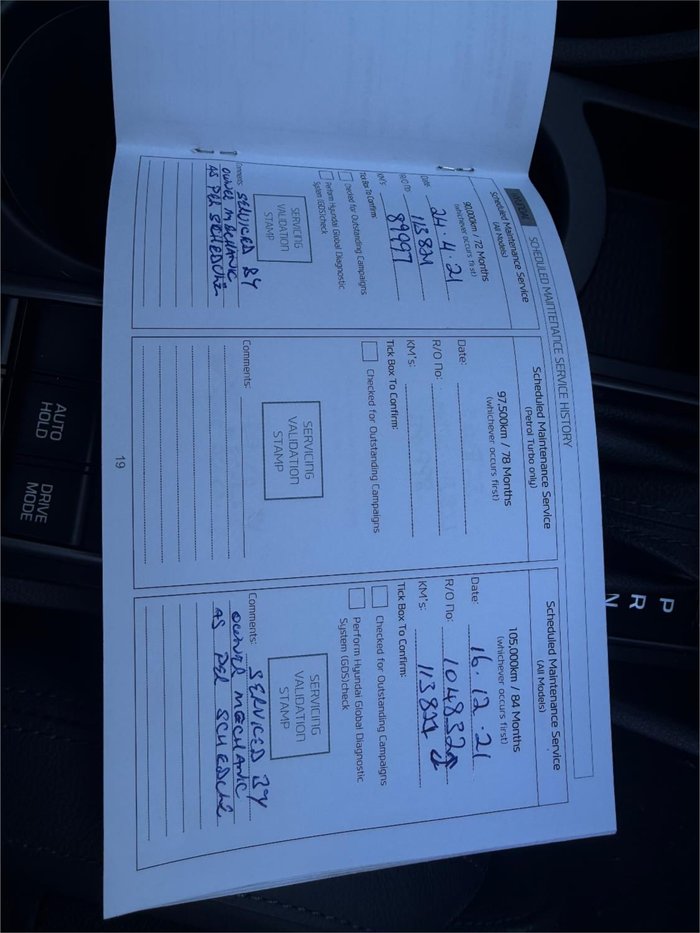 SCHEDULED MAINTENANCE SERVICE HISTORY
Scheduled Maintenance Service
(All Models)
90,000km / 72 Months
(whichever occurs first)
Date: 24.4.21
R/O No: 113821
KM's: 89097
Tick Box To Confirm:
Checked for Outstanding Campaigns
Perform Hyundai Global Diagnostic
System (GDS)check
SERVICING
VALIDATION
STAMP
Comments: SERVICED BY
OWNER MECHANIC
AS PER SCHEDULE
Scheduled Maintenance Service
(Petrol Turbo only)
97,500km / 78 Months
(whichever occurs first)
Date:
R/O No:
KM's:
Tick Box To Confirm:
Checked for Outstanding Campaigns
SERVICING
VALIDATION
STAMP
Comments:
Scheduled Maintenance Service
(All Models)
105,000km / 84 Months
(whichever occurs first)
Date: 16.12.21
R/O No: 104832
KM's: 113821
Tick Box To Confirm:
Checked for Outstanding Campaigns
Perform Hyundai Global Diagnostic
System (GDS)check
SERVICING
VALIDATION
STAMP
Comments: SERVICED BY
OWNER MECHANIC
AS PER SCHEDULE
19
AUTO
HOLD
DRIVE
MODE
P
R
N